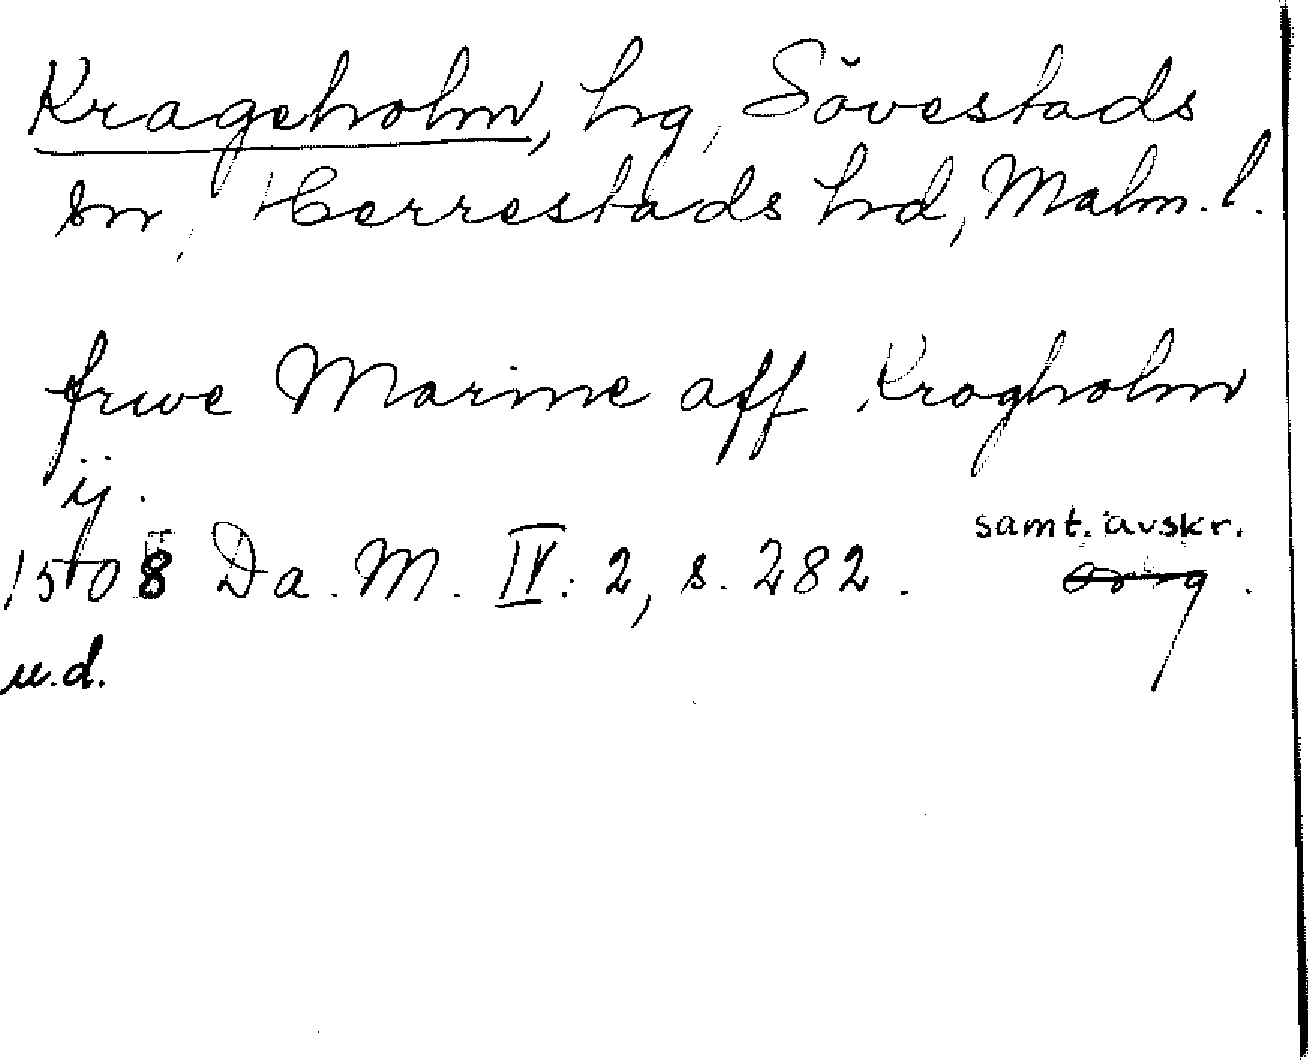 Krageholm, hg, Sövestads
sn, Herrestads hd, Malm. l.
frwe Marine aff Krogholm
ij.
samt. avskr.
1508 Da. M. IV: 2, s. 282. orig.
u.d.